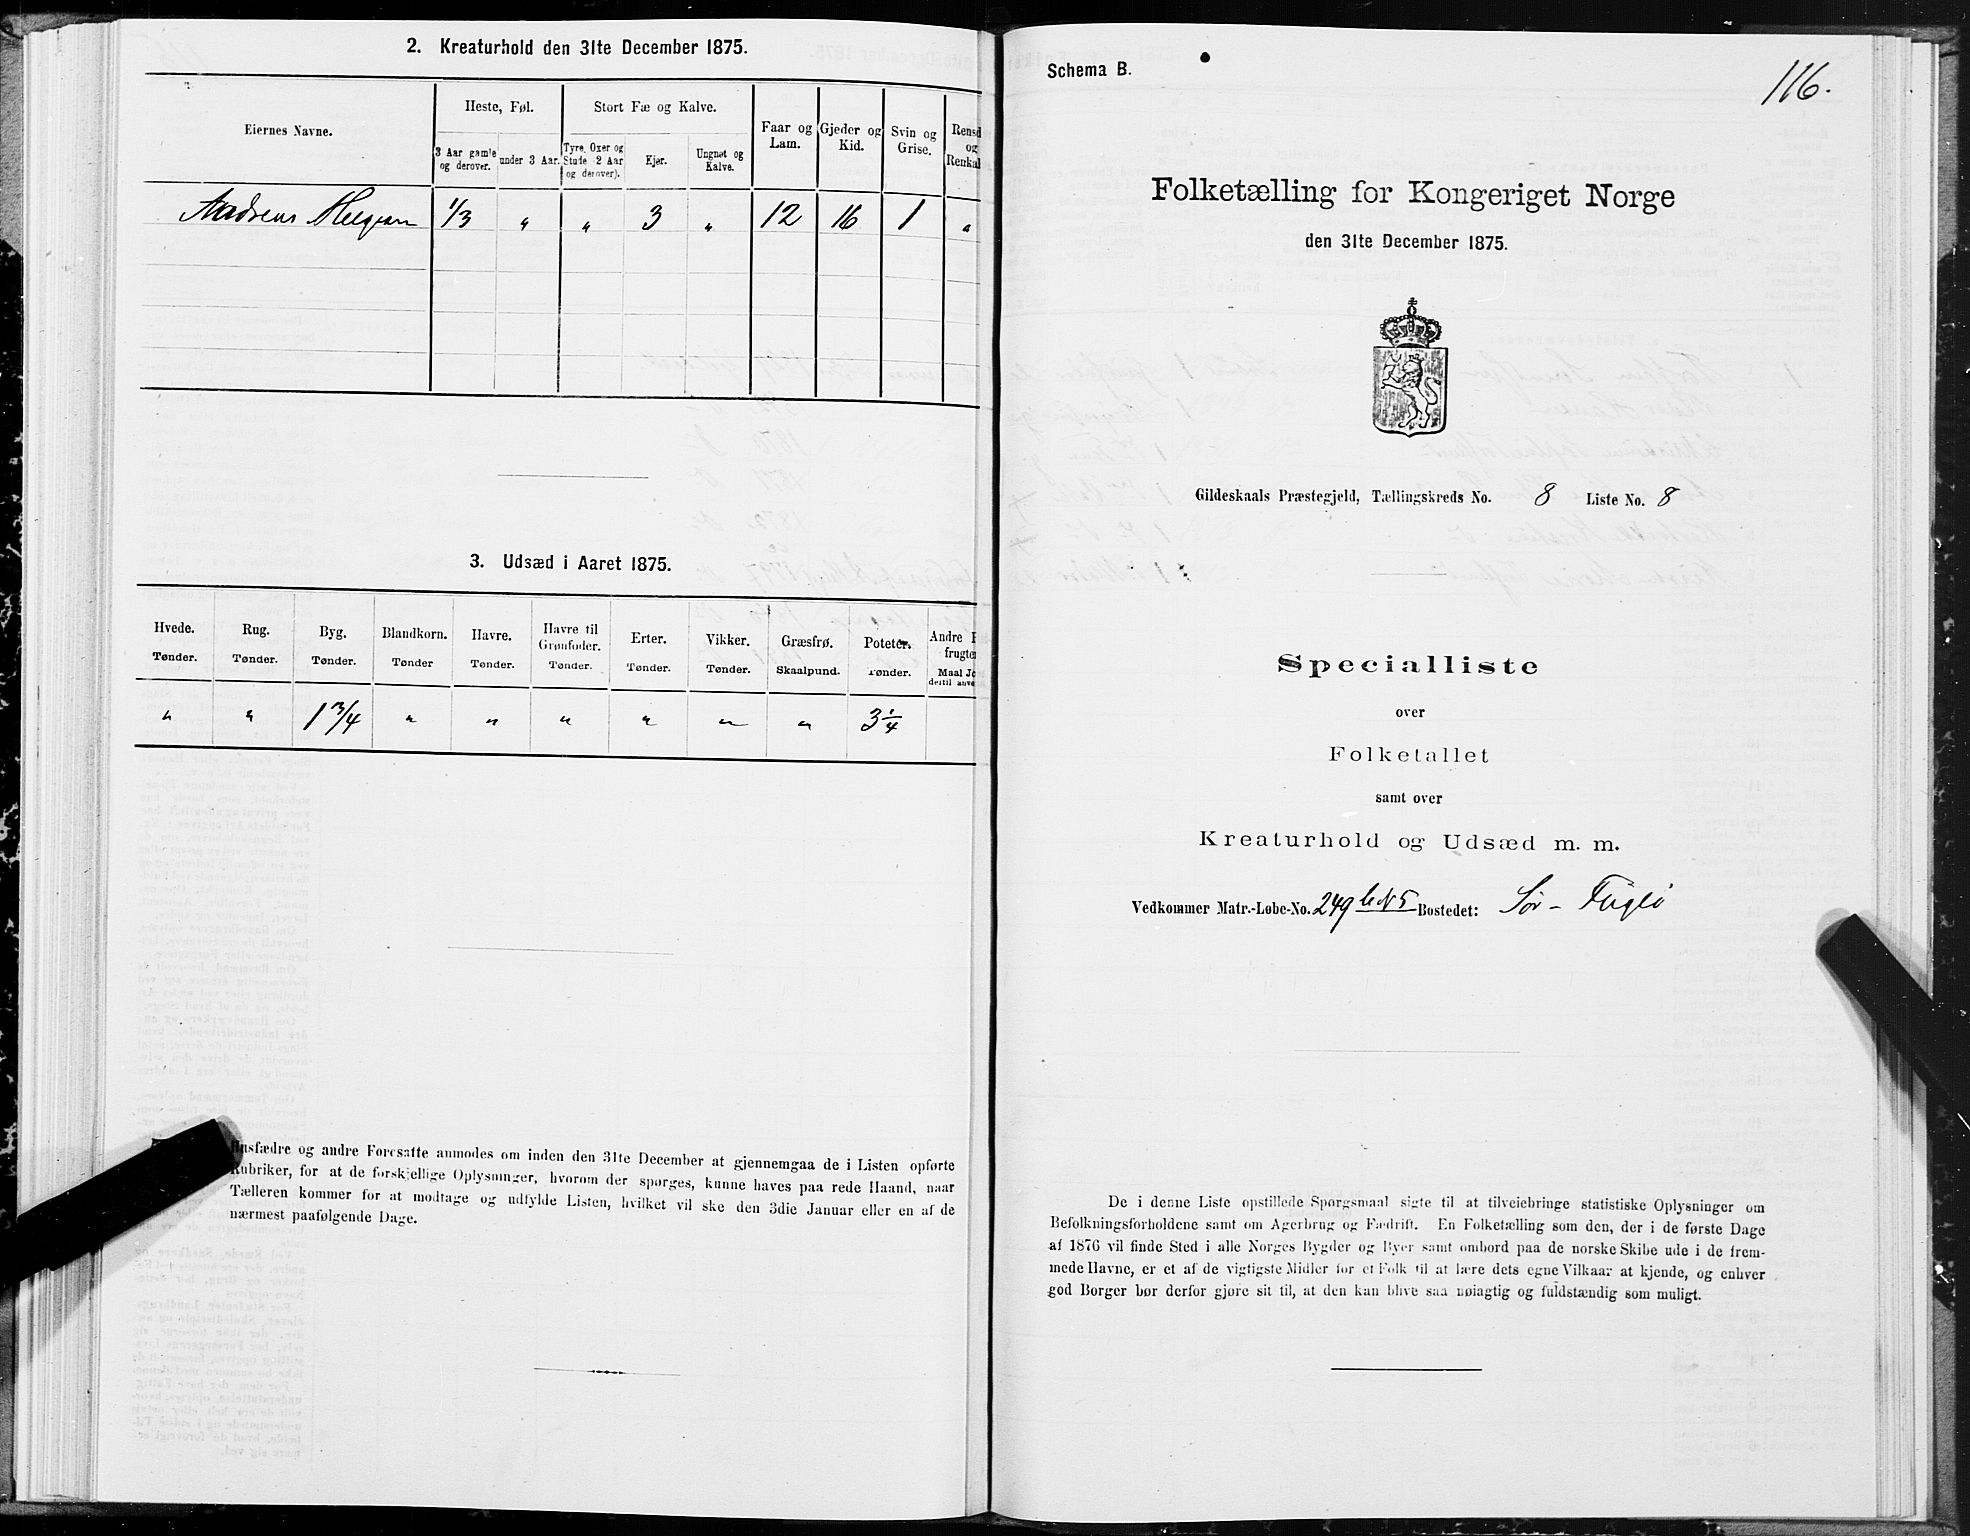 2. Kreaturhold den 31te December 1875.
Eiernes Navne.
Heste, Føl.
Stort Fæ og Kalve.
Faar og Lam.
Gjeder og Kid.
Svin og Grise.
Rensd
og
Renkal
3 Aar gamle og derover.
under 3 Aar.
Tyre, Oxer og Stude (2 Aar og derover).
Kjør.
Ungnøt og Kalve.
1/3 " " 3 " 12 16 1 "
3. Udsæd i Aaret 1875.
Hvede. Rug. Byg. Blandkorn. Havre. Havre til Grønfoder. Erter. Vikker. Græsfrø. Poteter. Andre
frugte
Tønder. Tønder. Tønder. Tønder Tønder. Tønder. Tønder. Tønder. Skaalpund. Tønder. Maal
dertil anve
" " 1 3/4 " " " " " " 3 1/4
Husfædre og andre Foresatte anmodes om inden den 31te December at gjennemgaa de i Listen opførte
Rubriker, for at de forskjellige Oplysninger, hvorom der spørges, kunne haves paa rede Haand, naar
Tælleren kommer for at modtage og udfylde Listen, hvilket vil ske den 3die Januar eller en af de
nærmest paafølgende Dage.
Schema B.
116.
Folketælling for Kongeriget Norge
den 31te December 1875.
Gildeskaals Præstegjeld, Tællingskreds No. 8 Liste No. 8
Specialliste
over
Folketallet
samt over
Kreaturhold og Udsæd m. m.
Vedkommer Matr.-Løbe-No. 249 b N 5 Bostedet: Sør-Fuglø
De i denne Liste opstillede Spørgsmaal sigte til at tilveiebringe statistiske Oplysninger om
Befolkningsforholdene samt om Agerbrug og Fædrift. En Folketælling som den, der i de første Dage
af 1876 vil finde Sted i alle Norges Bygder og Byer samt ombord paa de norske Skibe ude i de frem-
mede Havne, er et af de vigtigste Midler for et Folk til at lære dets egne Vilkaar at kjende, og enhver
god Borger bør derfor gjøre sit til, at den kan blive saa nøiagtig og fuldstændig som muligt.